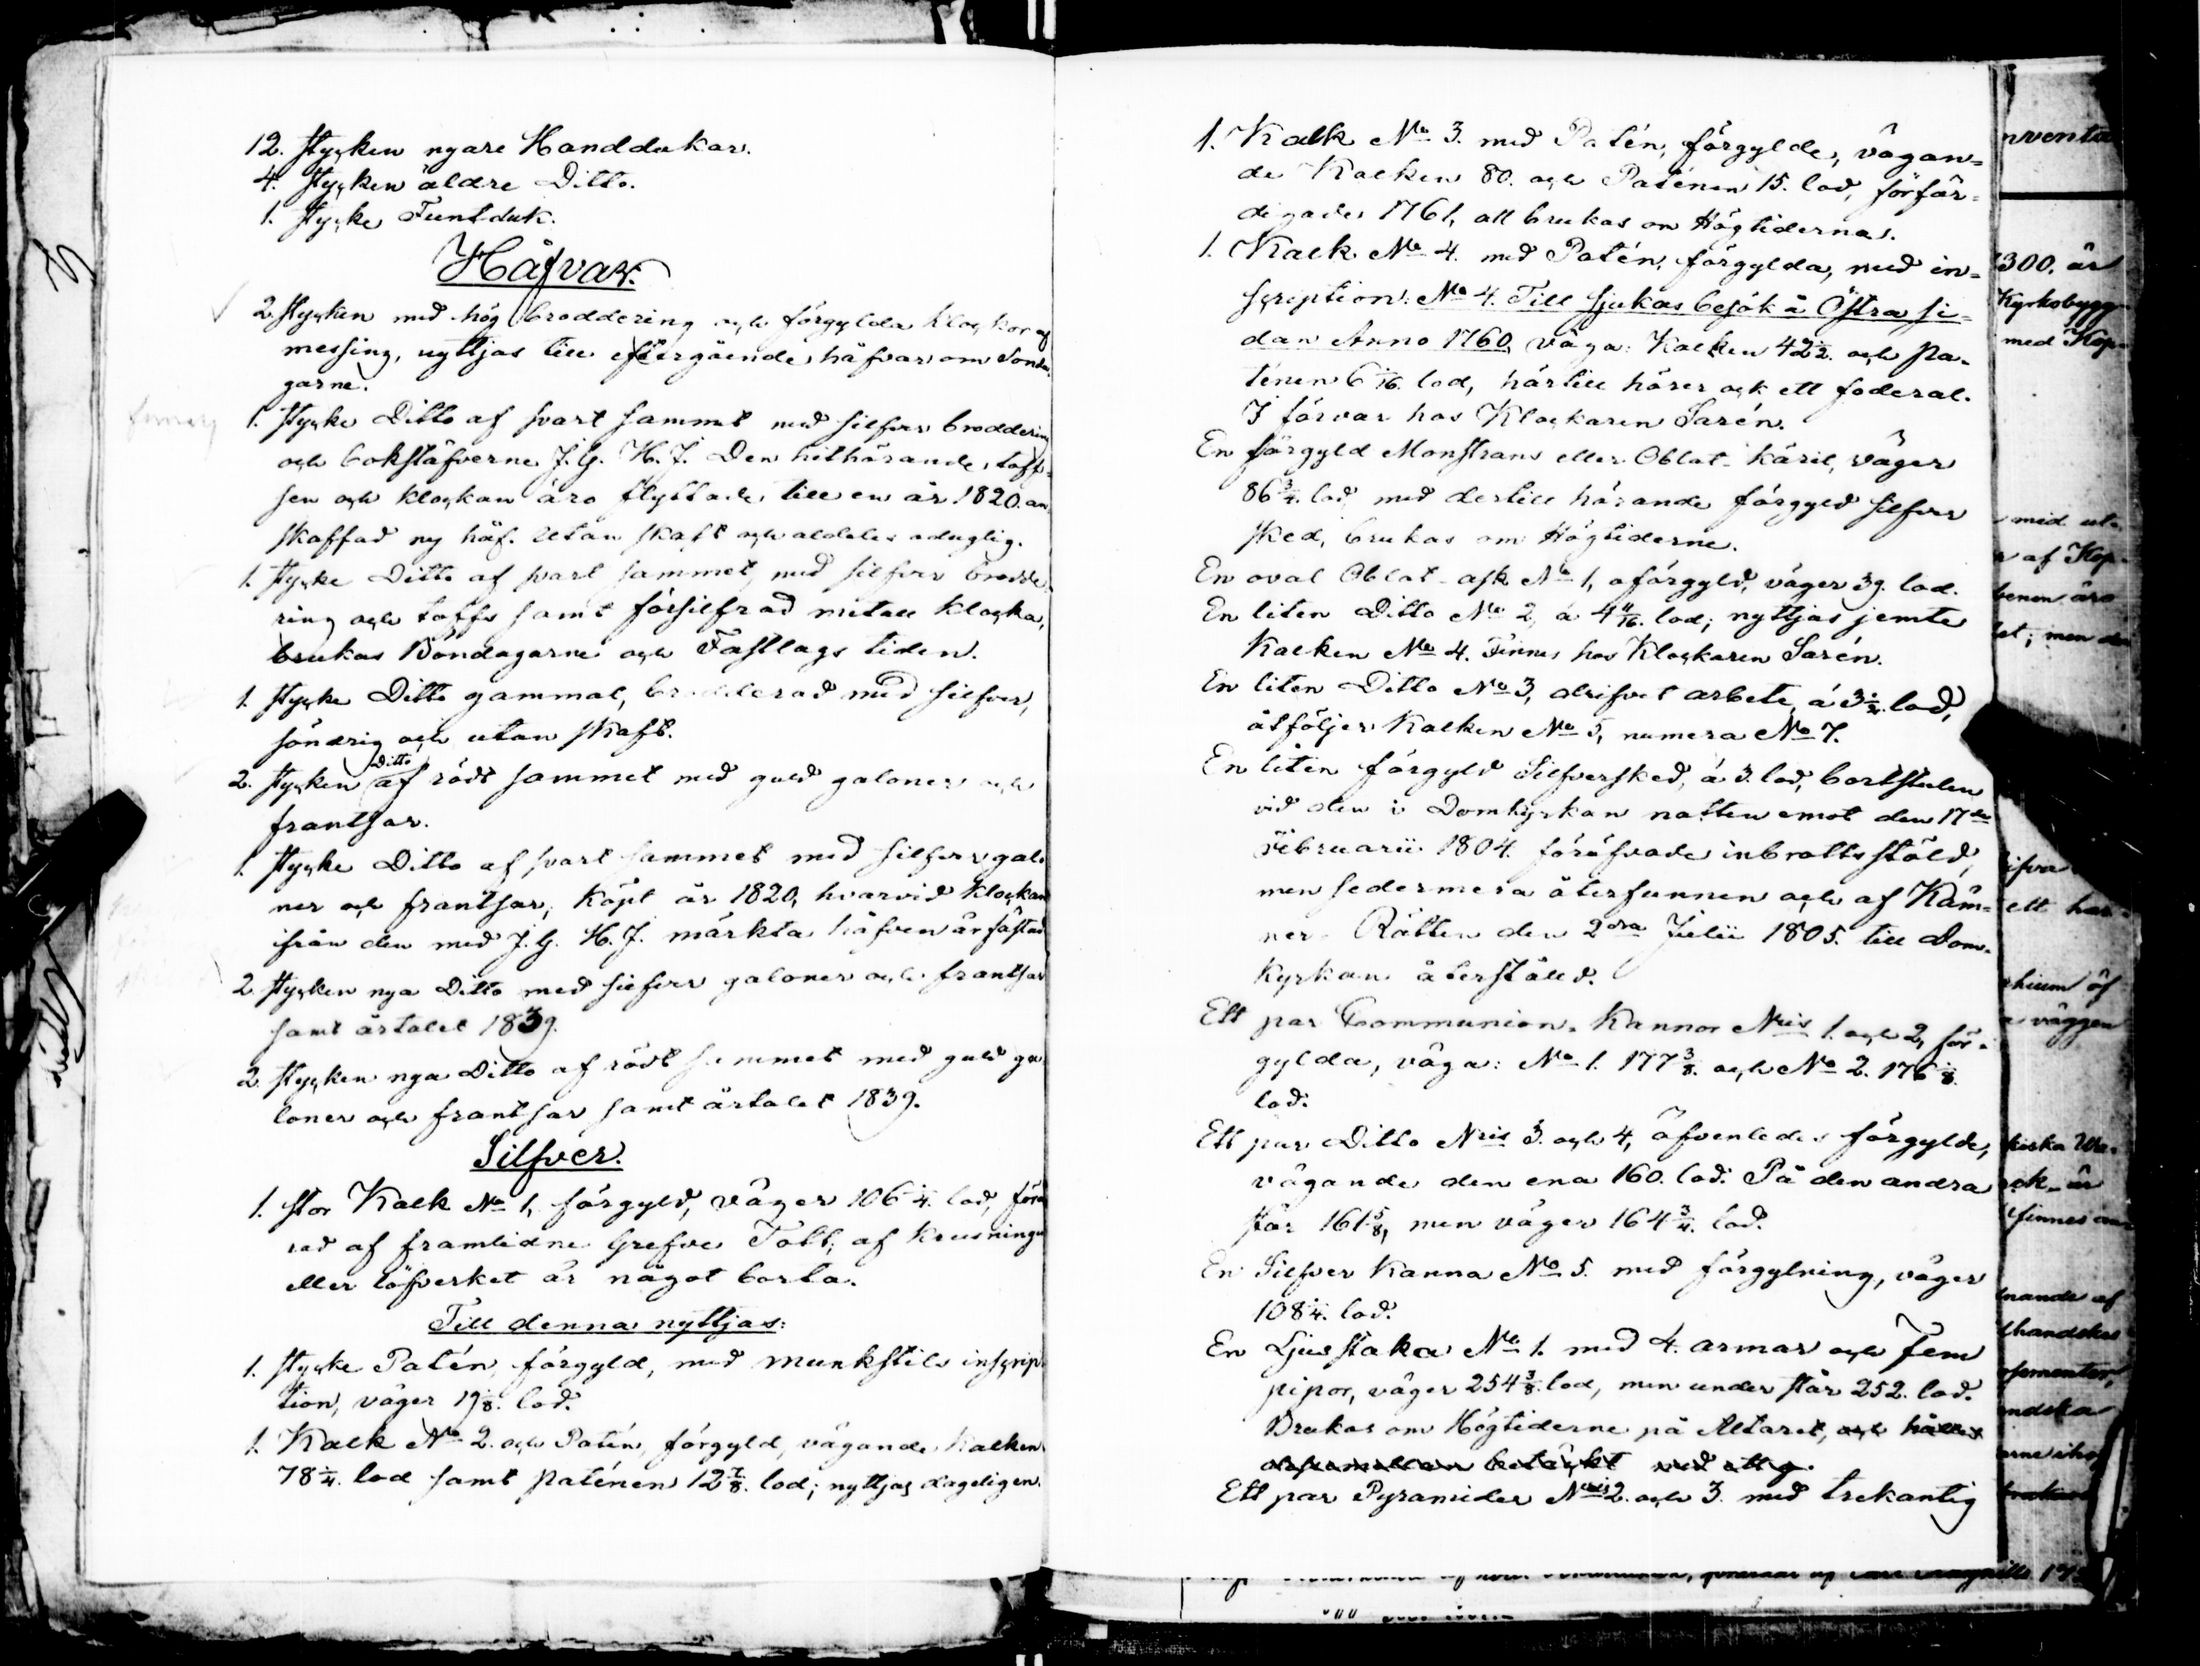 12. stycken nyare Handdukar.
4. stycken äldre Ditto.
1. stycke Funtduk.
Håfvar.
2. stycken med hög broddering och förgylda klockor af
messing, nyttjas till eftergående håfvar om Sönda-
garne.
1. stycke Ditto af svart sammet med silfver broddering
och bokstäfverne J. G. H. J. Den hithörande toff-
sen och klockan äro flyttade till en år 1820. an-
skaffad ny håf. Utan skaft och aldeles oduglig.
1. stycke Ditto af svart sammet, med silfver brodde-
ring och toffs samt försilfrad metall klocka,
brukas Böndagarne och Fastlags tiden.
1. stycke Ditto gammal, brodderad med silfver,
söndrig och utan skaft.
2. stycken Ditto af rödt sammet med guld galoner och
frantsar.
1. stycke Ditto af svart sammet med silfver galo-
ner och frantsar, köpt år 1820, hvarvid klockan
ifrån den med J. G. H. J. märkta håfven är fästad
2. stycken nya Ditto med silfver galoner och frantsar
samt årtalet 1839.
2. stycken nya Ditto af rödt sammet med guld ga-
loner och frantsar samt årtalet 1839.
Silfver.
1. stor Kalk No 1, förgyld, väger 106 1/4. lod, förä-
rad af framlidne Grefve Tott; af krusningen
eller löfverket är något borta.
Till denna nyttjas:
1. stycke Patén, förgyld, med munkstils inscrip-
tion, väger 19 1/8. lod.
1. Kalk No 2. och Patén, förgyld, vägande kalken
78 1/4. lod samt paténen 12 7/8. lod; nyttjas dageligen.
1. Kalk No 3. med Patén, förgylde, vägan-
de Kalken 80. och Paténen 15. lod, förfär-
digades 1761, att brukas om Högtidernas.
1. Kalk No 4. med Patén, förgylda, med in-
scription: No 4. Till sjukas besök å Östra si-
dan Anno 1760, väga: Kalken 42 1/2. och pa-
ténen 6 1/16. lod, härtill hörer ock ett foderal.
I förvar hos Klockaren Sarén.
En förgyld Monstrans eller Oblat-käril, väger
86 3/4. lod, med dertill hörande förgyld silfver
sked, brukas om Högtiderne.
En oval Oblat-ask No 1, oförgyld, väger 39. lod.
En liten Ditto No 2, á 4 11/16. lod; nyttjas jemte
Kalken No 4. Finnes hos Klockaren Sarén.
En liten Ditto No 3, drifvet arbete, á 3 1/2. lod,
åtföljer Kalken No 5, numera No 7.
En liten förgyld Silfversked, á 3. lod, bortstulen
vid den i Domkyrkan natten emot den 17de
Februarii 1804. föröfvade inbrottsstöld,
men sedermera återfunnen och af Käm-
ner-Rätten den 2dra Julii 1805. till Dom-
kyrkan återställd.
Ett par Communion-Kannor Nris 1. och 2, för-
gylda, väga: No 1. 177 3/8. och No 2. 176 1/8.
lod.
Ett par Ditto Nris 3. och 4, äfvenledes förgylde,
vägande den ena 160. lod. På den andra
står 161 5/8, men väger 164 3/4. lod.
En Silfver Kanna No 5. med förgylning, väger
108 1/4. lod.
En Ljusstaka No 1. med 4. armar och Fem
pipor, väger 254 3/8. lod, men under står 252. lod.
Brukas om Högtiderne på Altaret, och hålles
med ett
Ett par Pyramider Nris 2. och 3. med trekantig
nventa
1300. är
Kyrkobygg
med Kop-
med ut-
af Kop-
benen äro
et; men de
ett har
väggen
finnes
nande af
handskas